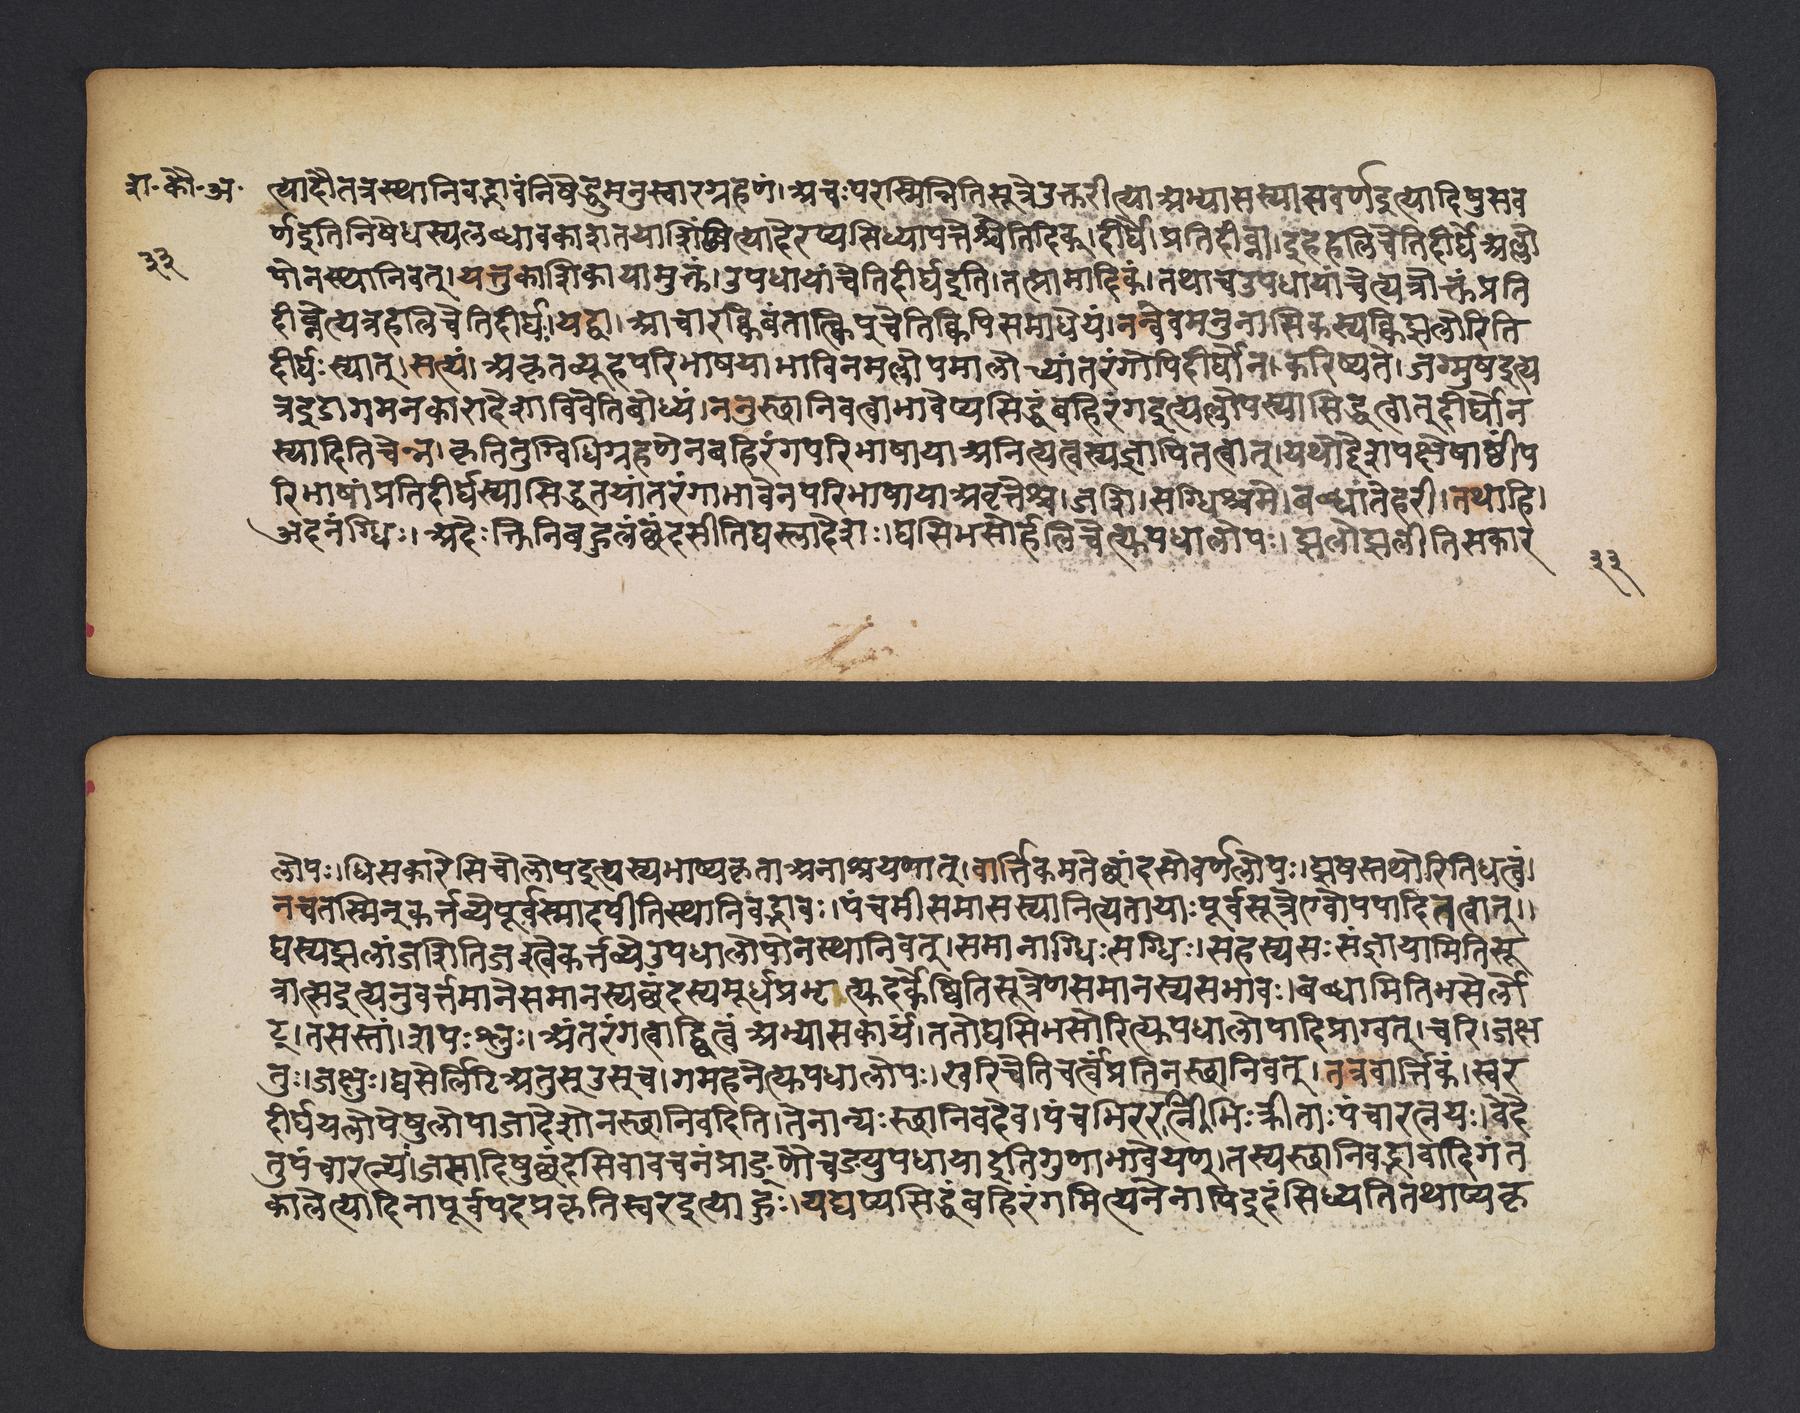 शा॰ कौ॰ अ॰
३३
त्यादौतत्रस्थानिवद्भावंनिषेद्धुमनुस्वारग्रहणं।अचःपरस्मिन्नितिसूत्रेउक्तरीत्याअभ्यासस्यासवर्णइत्यादिषुसव
र्णइतिनिषेधस्यलब्धावकाशतयाशिंढीत्यादेरप्यसिध्यापत्तेश्चेतिदिक्।दीर्घे।प्रतिदीव्ना।इहहलिचेतिदीर्घेअल्लो
पोनस्थानिवत्।यत्तुकाशिकायामुक्तं।उपधायांचेतिदीर्घइति।तत्प्रामादिकं।तथाचउपधायांचेत्यत्रोक्तंप्रति
दीव्नेत्यत्रहलिचेतिदीर्घः।यद्वा।आचारक्विबंतात्क्विपुचेतिक्विपिसमाधेयं।नन्वेवमनुनासिकस्यक्विझलोरिति
दीर्घःस्यात्।सत्यं।अकृतव्यूहपरिभाषयाभाविनमल्लोपमालोच्यांतरंगोपिदीर्घोन।करिष्यते।जग्मुषइत्य
त्रइडागमनकारादेशाविवेतिबोध्यं।ननुस्छानिवत्वाभावेप्यसिद्धंबहिरंगइत्यल्लोपस्यासिद्धत्वात्दीर्घोन
स्यादितिचेन्न।कृतितुग्विधिग्रहणेनबहिरंगपरिभाषायाअनित्यत्वस्यज्ञापितत्वात्।यथोद्देशपक्षेषाष्ठीप
रिभाषांप्रतिदीर्घस्यासिद्धतयांतरंगाभावेनपरिभाषायाअवृत्तेश्च।जशि।सग्धिश्चमे।बब्धांतेहरी।तथाहि।
अदनंग्धिः।अदेःक्तिनिबहुलंछंदसीतिघस्लादेशः।घसिभसोर्हलिचेत्युपधालोपः।झलोझलीतिसकार
३३
लोपः।धिसकारेसिचोलोपइत्यस्यभाष्यकृताअनाश्रयणात्।वार्त्तिकमतेछांदसोवर्णलोपः।झषस्तथोरितिधत्वं।
नचतस्मिन्कर्त्तव्येपूर्वस्मादपीतिस्थानिवद्भावः।पंचमीसमासस्यानित्यतायाःपूर्वसूत्रेएवोपपादितत्वात्।।
घस्यझलांजशितिजश्त्वेकर्त्तव्येउपधालोपोनस्थानिवत्।समानाग्धिःसग्धिः।सहस्यसःसंज्ञायामितिसू
त्रात्सइत्यनुवर्त्तमानेसमानस्यछंदस्यमूर्धप्रभृत्युदर्केष्वितिसूत्रेणसमानस्यसभावः।बब्धामितिभसेर्लो
ट्।तसस्तां।शपःश्लुः।अंतरंगत्वाद्द्वित्वंअभ्यासकार्यं।ततोघसिभसोरित्युपधालोपादिप्राग्वत्।चरि।जक्ष
तुः।जक्षुः।घसेर्लिटिअतुसूउसूच।गमहनेत्युपधालोपः।खरिचेतिचर्त्वंप्रतिनस्छानिवत्।तत्रवार्त्तिकं।स्वर
दीर्घयलोपेषुलोपाजादेशोनस्छानिवदिति।तेनान्यःस्छानिवदेव।पंचभिररत्नीभिःक्रीताःपंचारत्नयः।वेदे
तुपंचारत्न्यः।जसादिषुछंदसिवावचनंप्राङ्णौचङ्युपधायाइतिगुणाभावेयण्।तस्यस्छानिवद्भावादिगंत
कालेत्यादिनापूर्वपदप्रकृतिस्वरइत्याहुः।यद्यप्यसिद्धंबहिरंगमित्यनेनापिइदंसिध्यतितथाप्यकृ